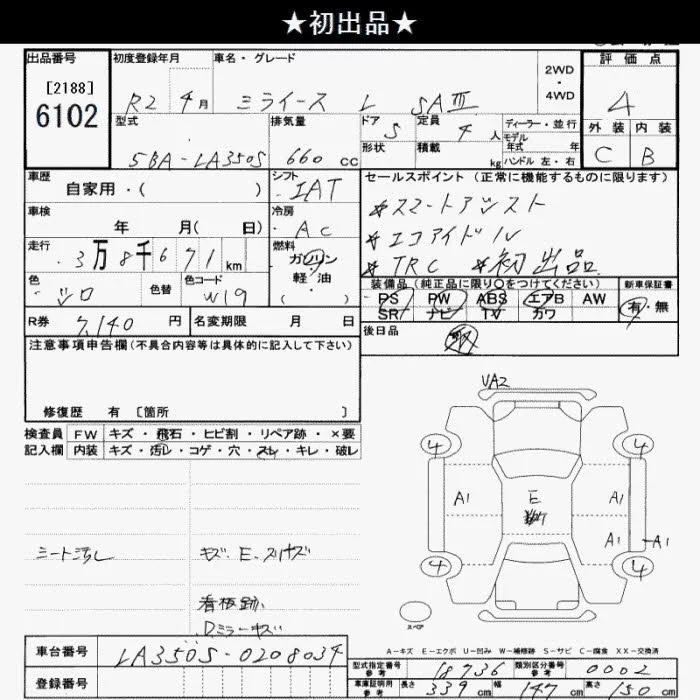 ★初出品★
出品番号
[2188]
6102
初度登録年月
R2 4月
車名・グレード
ミライース L SAⅢ
2WD
・
4WD
評価点
4
外装 内装
C B
型式
5BA-LA350S
排気量
660 cc
ドア 5
形状
定員 4 人
積載 kg
ディーラー・並行
モデル
年式 年
ハンドル 左・右
車歴
自家用・( )
シフト
IAT
車検
年 月( 日)
冷房
AC
走行
3万8千671 km
燃料
ガソリン
・
軽・油
( )
色
シロ
色替
色コード
W19
R券
7,140 円
名変期限 月 日
セールスポイント(正常に機能するものに限ります)
☆スマートアシスト
☆エコアイドル
☆TRC ☆初出品
装備品(純正品に限り○をつけてください)
PS PW ABS エアB AW
SR ナビ TV カワ
新車保証書
有・無
後日品
注意事項申告欄(不具合内容等は具体的に記入して下さい)
修復歴 有 [箇所 ]
検査員
記入欄
FW キズ・飛石・ヒビ割・リペア跡・×要
内装 キズ・汚レ・コゲ・穴・スレ・キレ・破レ
シート汚し
キズ・E・スリキズ
看板跡
Dミラーキズ
VA2
4 4
A1 E A1
A1 A1
4 4
スペア
A-キズ E-エクボ U-凹み W-補修跡 S-サビ C-腐食 XX-交換済
車台番号
LA350S-0208034
登録番号
型式指定番号
参考
18736
類別区分番号
参考
0002
車庫証明用
参考
長さ 339 cm 幅 147 cm 高さ 150 cm